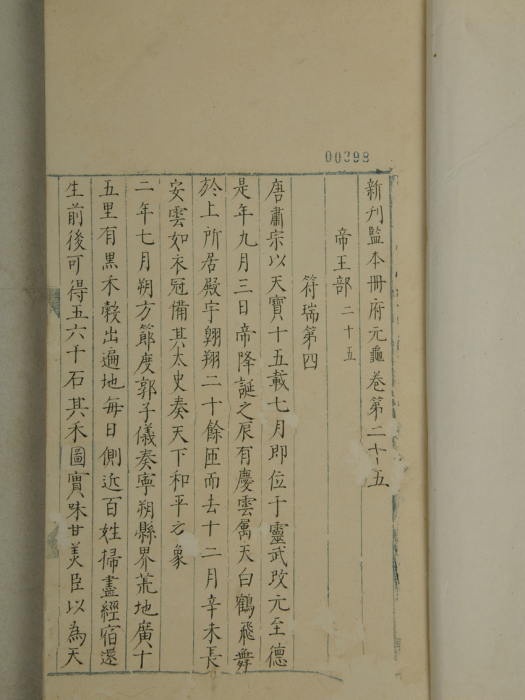 00398
新刊監本冊府元龜卷第二十五
帝王部 二十五
符瑞第四
唐肅宗以天寶十五載七月即位于靈武改元至德
是年九月三日帝降誕之辰有慶雲屬天白鶴飛舞
於上所居殿宇翱翔二十餘匝而去十二月辛未長
安雲如衣冠備其太史奏天下和平之象
二年七月朔方節度郭子儀奏寧朔縣界荒地廣十
五里有黑禾穀出遍地每日側近百姓掃盡經宿還
生前後可得五六千石其禾圓實味甘美臣以為天